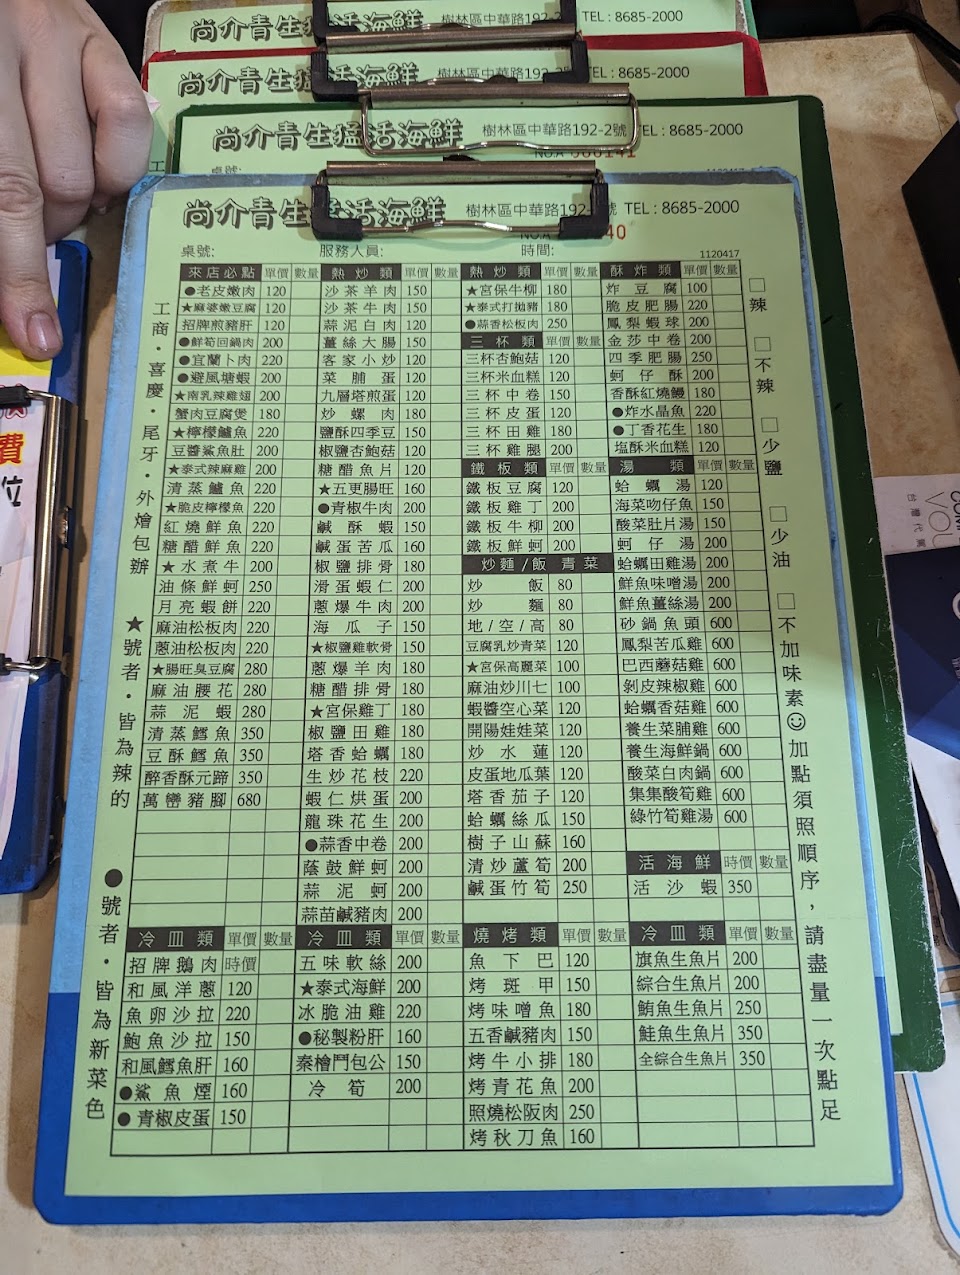 尚介青生猛活海鮮 樹林區中華路192-2 TEL : 8685-2000
尚介青生猛活海鮮 樹林區中華路192-2 TEL : 8685-2000
尚介青生猛活海鮮 樹林區中華路192-2號 TEL : 8685-2000
尚介青生猛活海鮮 樹林區中華路192- 號 TEL : 8685-2000
桌號: 服務人員: 時間: 1120417
來店必點 單價 數量
●老皮嫩肉 120
★麻婆嫩豆腐 120
招牌煎豬肝 120
●鮮筍回鍋肉 200
●宜蘭卜肉 220
●避風塘蝦 200
★南乳辣雞翅 200
蟹肉豆腐煲 180
★檸檬鱸魚 220
豆醬鯊魚肚 200
★泰式辣麻雞 200
清蒸鱸魚 220
★脆皮檸檬魚 220
紅燒鮮魚 220
糖醋鮮魚 220
★水煮牛 200
油條鮮蚵 250
月亮蝦餅 220
麻油松板肉 220
蔥油松板肉 220
★腸旺臭豆腐 280
麻油腰花 280
蒜泥蝦 280
清蒸鱈魚 350
豆酥鱈魚 350
醉香酥元蹄 350
萬巒豬腳 680
熱炒類 單價 數量
沙茶羊肉 150
沙茶牛肉 150
蒜泥白肉 120
薑絲大腸 150
客家小炒 120
菜脯蛋 120
九層塔煎蛋 120
炒螺肉 180
鹽酥四季豆 150
椒鹽杏鮑菇 120
糖醋魚片 120
★五更腸旺 160
●青椒牛肉 200
鹹酥蝦 150
鹹蛋苦瓜 160
椒鹽排骨 180
滑蛋蝦仁 200
蔥爆牛肉 200
海瓜子 150
★椒鹽雞軟骨 150
蔥爆羊肉 180
糖醋排骨 180
★宮保雞丁 180
椒鹽田雞 180
塔香蛤蠣 180
生炒花枝 220
蝦仁烘蛋 200
龍珠花生 200
●蒜香中卷 200
蔭鼓鮮蚵 200
蒜泥蚵 200
蒜苗鹹豬肉 200
熱炒類 單價 數量
★宮保牛柳 180
★泰式打拋豬 180
●蒜香松板肉 250
三杯類 單價 數量
三杯杏鮑菇 120
三杯米血糕 120
三杯中卷 150
三杯皮蛋 120
三杯田雞 180
三杯雞腿 200
鐵板類 單價 數量
鐵板豆腐 120
鐵板雞丁 200
鐵板牛柳 200
鐵板鮮蚵 200
炒麵/飯 青菜
炒飯 80
炒麵 80
地/空/高 80
豆腐乳炒青菜 120
★宮保高麗菜 100
麻油炒川七 100
蝦醬空心菜 120
開陽娃娃菜 120
炒水蓮 120
皮蛋地瓜葉 120
塔香茄子 120
蛤蠣絲瓜 150
樹子山蘇 160
清炒蘆筍 200
鹹蛋竹筍 250
酥炸類 單價 數量
炸豆腐 100
脆皮肥腸 220
鳳梨蝦球 200
金莎中卷 200
四季肥腸 250
蚵仔酥 200
香酥紅燒鰻 180
●炸水晶魚 220
●丁香花生 180
塩酥米血糕 120
湯類 單價 數量
蛤蠣湯 120
海菜吻仔魚 150
酸菜肚片湯 150
蚵仔湯 200
蛤蠣田雞湯 200
鮮魚味噌湯 200
鮮魚薑絲湯 200
砂鍋魚頭 600
鳳梨苦瓜雞 600
巴西蘑菇雞 600
剝皮辣椒雞 600
蛤蠣香菇雞 600
養生菜脯雞 600
養生海鮮鍋 600
酸菜白肉鍋 600
集集酸筍雞 600
綠竹筍雞湯 600
活海鮮 時價 數量
活沙蝦 350
冷皿類 單價 數量
招牌鵝肉 時價
和風洋蔥 120
魚卵沙拉 220
鮑魚沙拉 150
和風鱈魚肝 160
●鯊魚煙 160
●青椒皮蛋 150
冷皿類 單價 數量
五味軟絲 200
★泰式海鮮 200
冰脆油雞 220
●秘製粉肝 160
秦檜鬥包公 150
冷筍 200
燒烤類 單價 數量
魚下巴 120
烤斑甲 150
烤味噌魚 180
五香鹹豬肉 150
烤牛小排 180
烤青花魚 200
照燒松阪肉 250
烤秋刀魚 160
冷皿類 單價 數量
旗魚生魚片 200
綜合生魚片 200
鮪魚生魚片 250
鮭魚生魚片 350
全綜合生魚片 350
工商·喜慶·尾牙·外燴包辦
★號者·皆為辣的
●號者·皆為新菜色
□辣 □不辣 □少鹽 □少油 □不加味素☺加點須照順序,請盡量一次點足
費
位